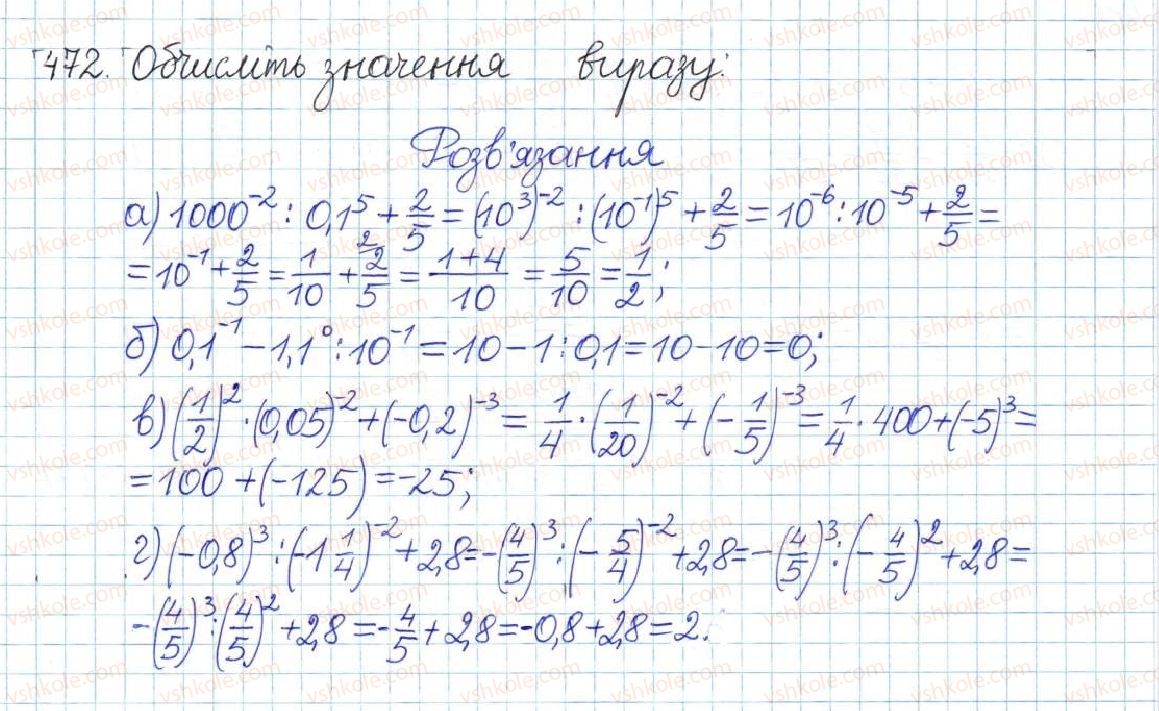 472. Обчисліть значення виразу:
Розв'язання
а) 1000⁻² : 0,1⁵ + 2/5 = (10³)⁻² : (10⁻¹)⁵ + 2/5 = 10⁻⁶ : 10⁻⁵ + 2/5 =
= 10⁻¹ + 2/5 = 1/10 + ²⁾2/5 = (1+4)/10 = 5/10 = 1/2;
б) 0,1⁻¹ − 1,1⁰ : 10⁻¹ = 10 − 1 : 0,1 = 10 − 10 = 0;
в) (1/2)² · (0,05)⁻² + (−0,2)⁻³ = 1/4 · (1/20)⁻² + (−1/5)⁻³ = 1/4 · 400 + (−5)³ =
= 100 + (−125) = −25;
г) (−0,8)³ : (−1 1/4)⁻² + 2,8 = −(4/5)³ : (−5/4)⁻² + 2,8 = −(4/5)³ : (−4/5)² + 2,8 =
−(4/5)³ : (4/5)² + 2,8 = −4/5 + 2,8 = −0,8 + 2,8 = 2.